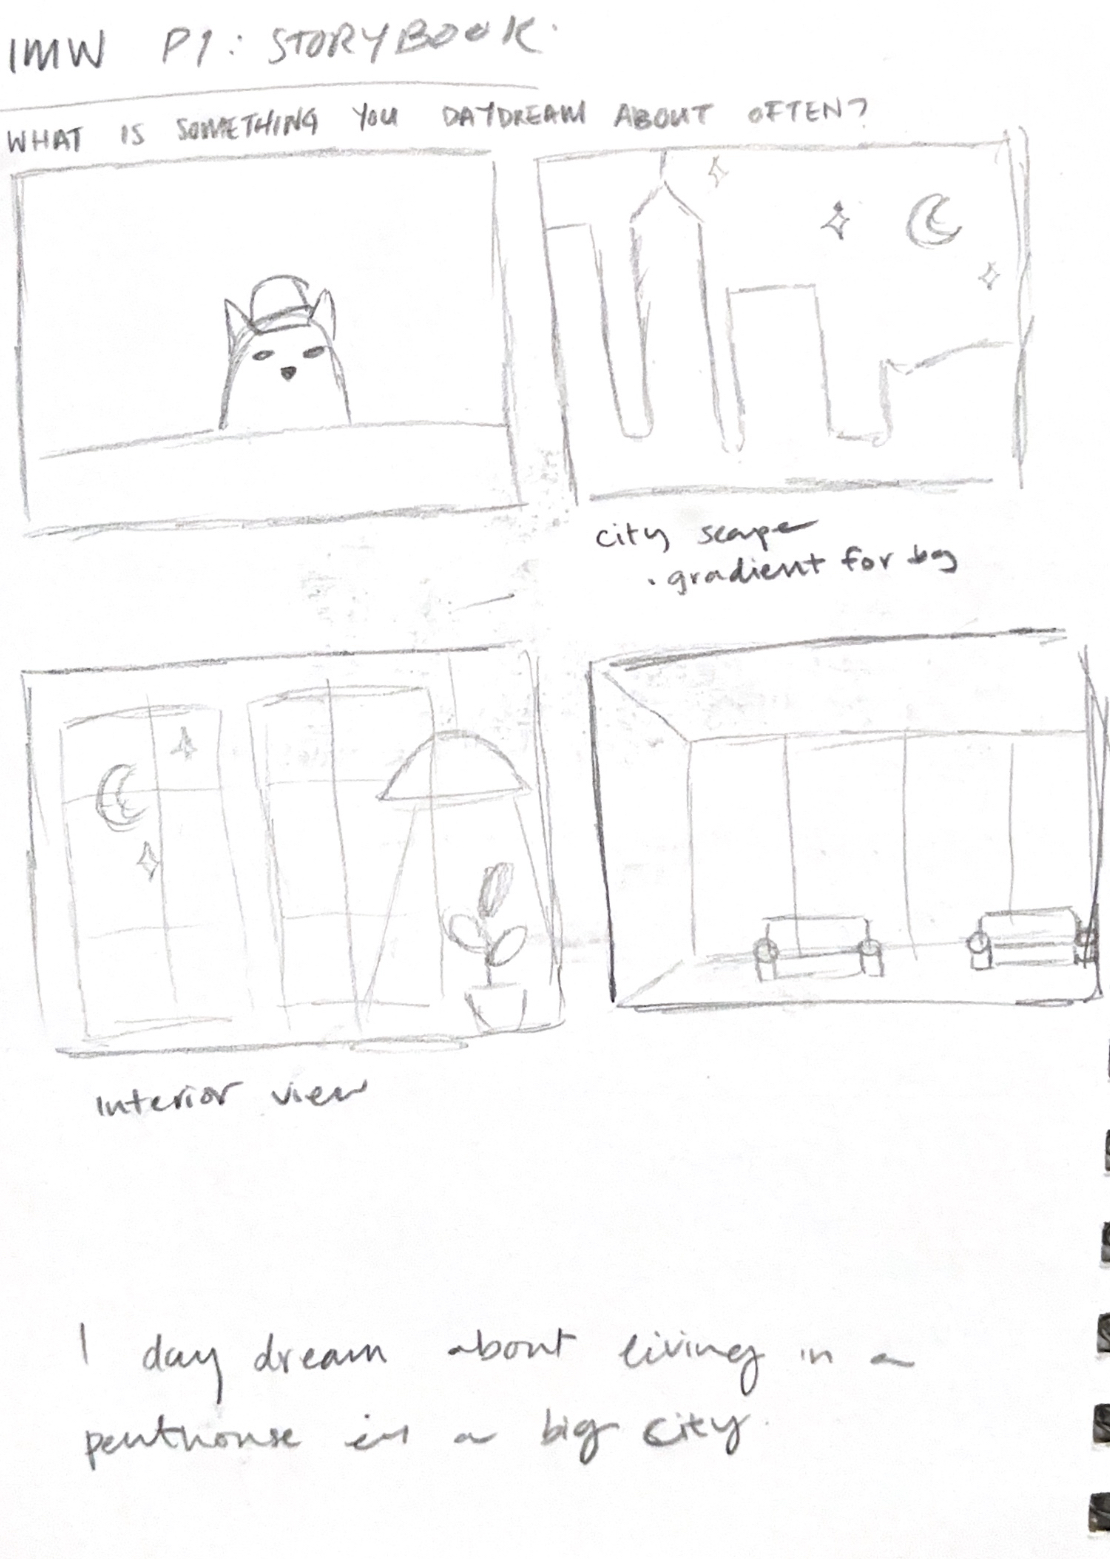 IMW P1: STORYBOOK.
WHAT IS SOMETHING YOU DAYDREAM ABOUT OFTEN?
city scape
· gradient for bg
Interior view
I day dream about living in a
penthouse in a big city.